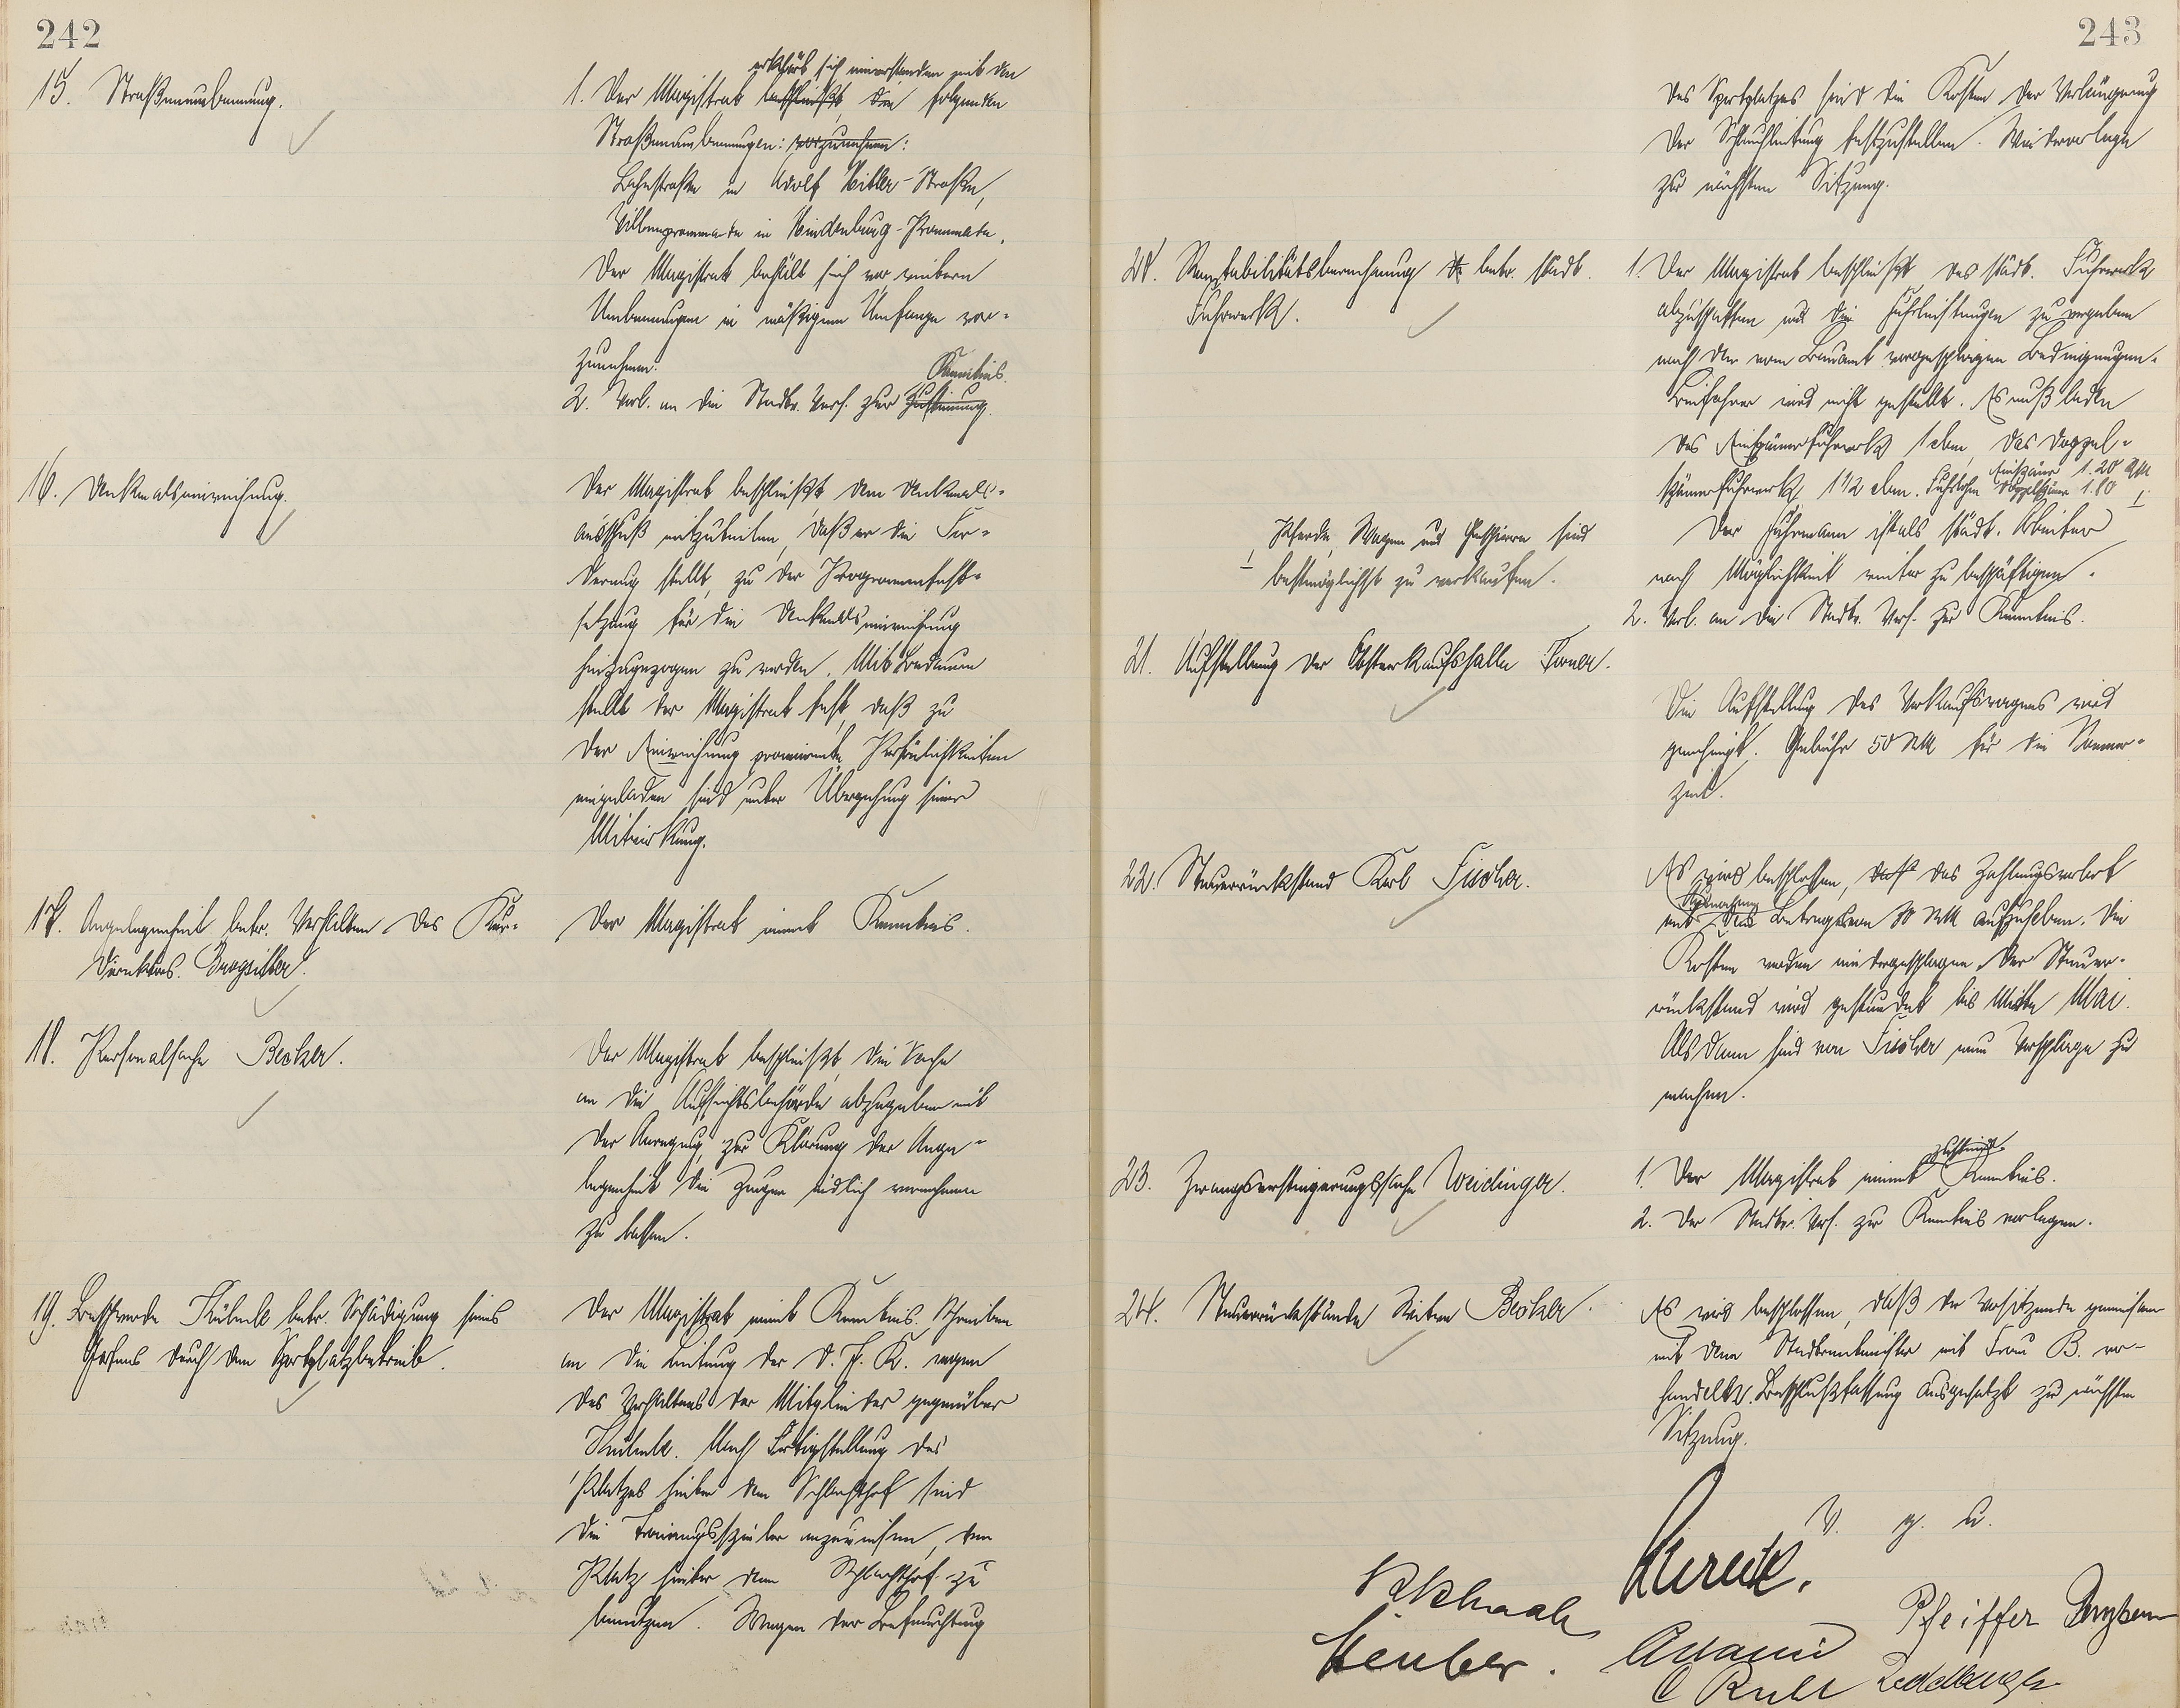 242
15. Straßenumbenennung.
erklärt sich einverstanden mit den
1. Der Magistrat beschließt, die folgenden
Straßenumbenennungen: vorzunehmen:
Bahnstraße in Adolf Hitler-Straße,
Villenpromenade in Hindenburg-Promenade.
Der Magistrat behält sich vor, weitere
Umbenennungen in mäßigem Umfange vor-
zunehmen.
Kenntnis.
2. Vorl. an die Stadtv. Vers. zur Zustimmung.
16. Denkmalseinweihung.
Der Magistrat beschließt dem Denkmals-
ausschuß mitzuteilen, daß er die For-
derung stellt, zu der Programmfest-
setzung für die Denkmalseinweihung
hinzugezogen zu werden. Mit Bedauern
stellt der Magistrat fest, daß zu
der Einweihung prominente Persönlichkeiten
eingeladen sind unter Übergehung seiner
Mitwirkung.
17. Angelegenheit betr. Verhalten des Kur-
direktors Brogsitter.
Der Magistrat nimmt Kenntnis.
18. Personalsache Becker.
Der Magistrat beschließt, die Sache
an die Aufsichtsbehörde abzugeben mit
der Anregung, zur Klärung der Ange-
legenheit die Zeugen eidlich vernehmen
zu lassen.
19. Beschwerde betr. Schädigung seines
durch den Sportplatzbetrieb.
Der Magistrat nimmt Kenntnis. Schreiben
an die Leitung der D. J. K. wegen
des Verhaltens der Mitglieder gegenüber
Nach Fertigstellung des
Platzes hinter dem Schlachthof sind
die Trainingsspieler anzuweisen, den
Platz hinter dem Schlachthof zu
benutzen. Wegen der Befeuchtung
243
des Sportplatzes sind die Kosten der Verlängerung
der Schlauchleitung festzustellen. Wiedervorlage
zur nächsten Sitzung.
20. Rentabilitätsberechnung betr. städt.
Fuhrwerk.
1. Der Magistrat beschließt das städt. Fuhrwerk
abzuschaffen und die Fuhrleistungen zu vergeben
nach den vom Bauamt vorgeschlagenen Bedingungen.
Beifahrer wird nicht gestellt. Es muß laden
das Einspännerfuhrwerk 1 cbm, das Doppel-
Einspänner 1.20 RM
spännerfuhrwerk 1 1/2 cbm. Fuhrlohn Doppelspänner 1.80
Pferde, Wagen und Geschirre sind
bestmöglichst zu verkaufen.
Der Fuhrmann ist als städt. Arbeiter
nach Möglichkeit weiter zu beschäftigen.
2. Vorl. an die Stadtv. Vers. zur Kenntnis.
21. Aufstellung der Obstverkaufshalle
Die Aufstellung des Verkaufswagens wird
genehmigt. Gebühr 50 RM für die Sommer-
zeit.
22. Steuerrückstand Karl Fischer.
Es wird beschlossen, daß das Zahlungsverbot
mit Betrages von RM aufzuheben. Die
Kosten werden niedergeschlagen. Der Steuer-
rückstand wird gestundet bis Mitte Mai.
Alsdann sind von Fischer neue Vorschläge zu
machen.
23. Zwangsversteigerungssache Weidinger.
zustimmend
1. Der Magistrat nimmt Kenntnis.
2. Der Stadtv. Vers. zur Kenntnis vorlegen.
24. Steuerrückstände Becker.
Es wird beschlossen, daß der Vorsitzende gemeinsam
mit dem Stadtrentmeister mit Frau B. ver-
handelt. Beschlußfassung ausgesetzt zur nächsten
Sitzung.
V. g. u.
Pfeiffer